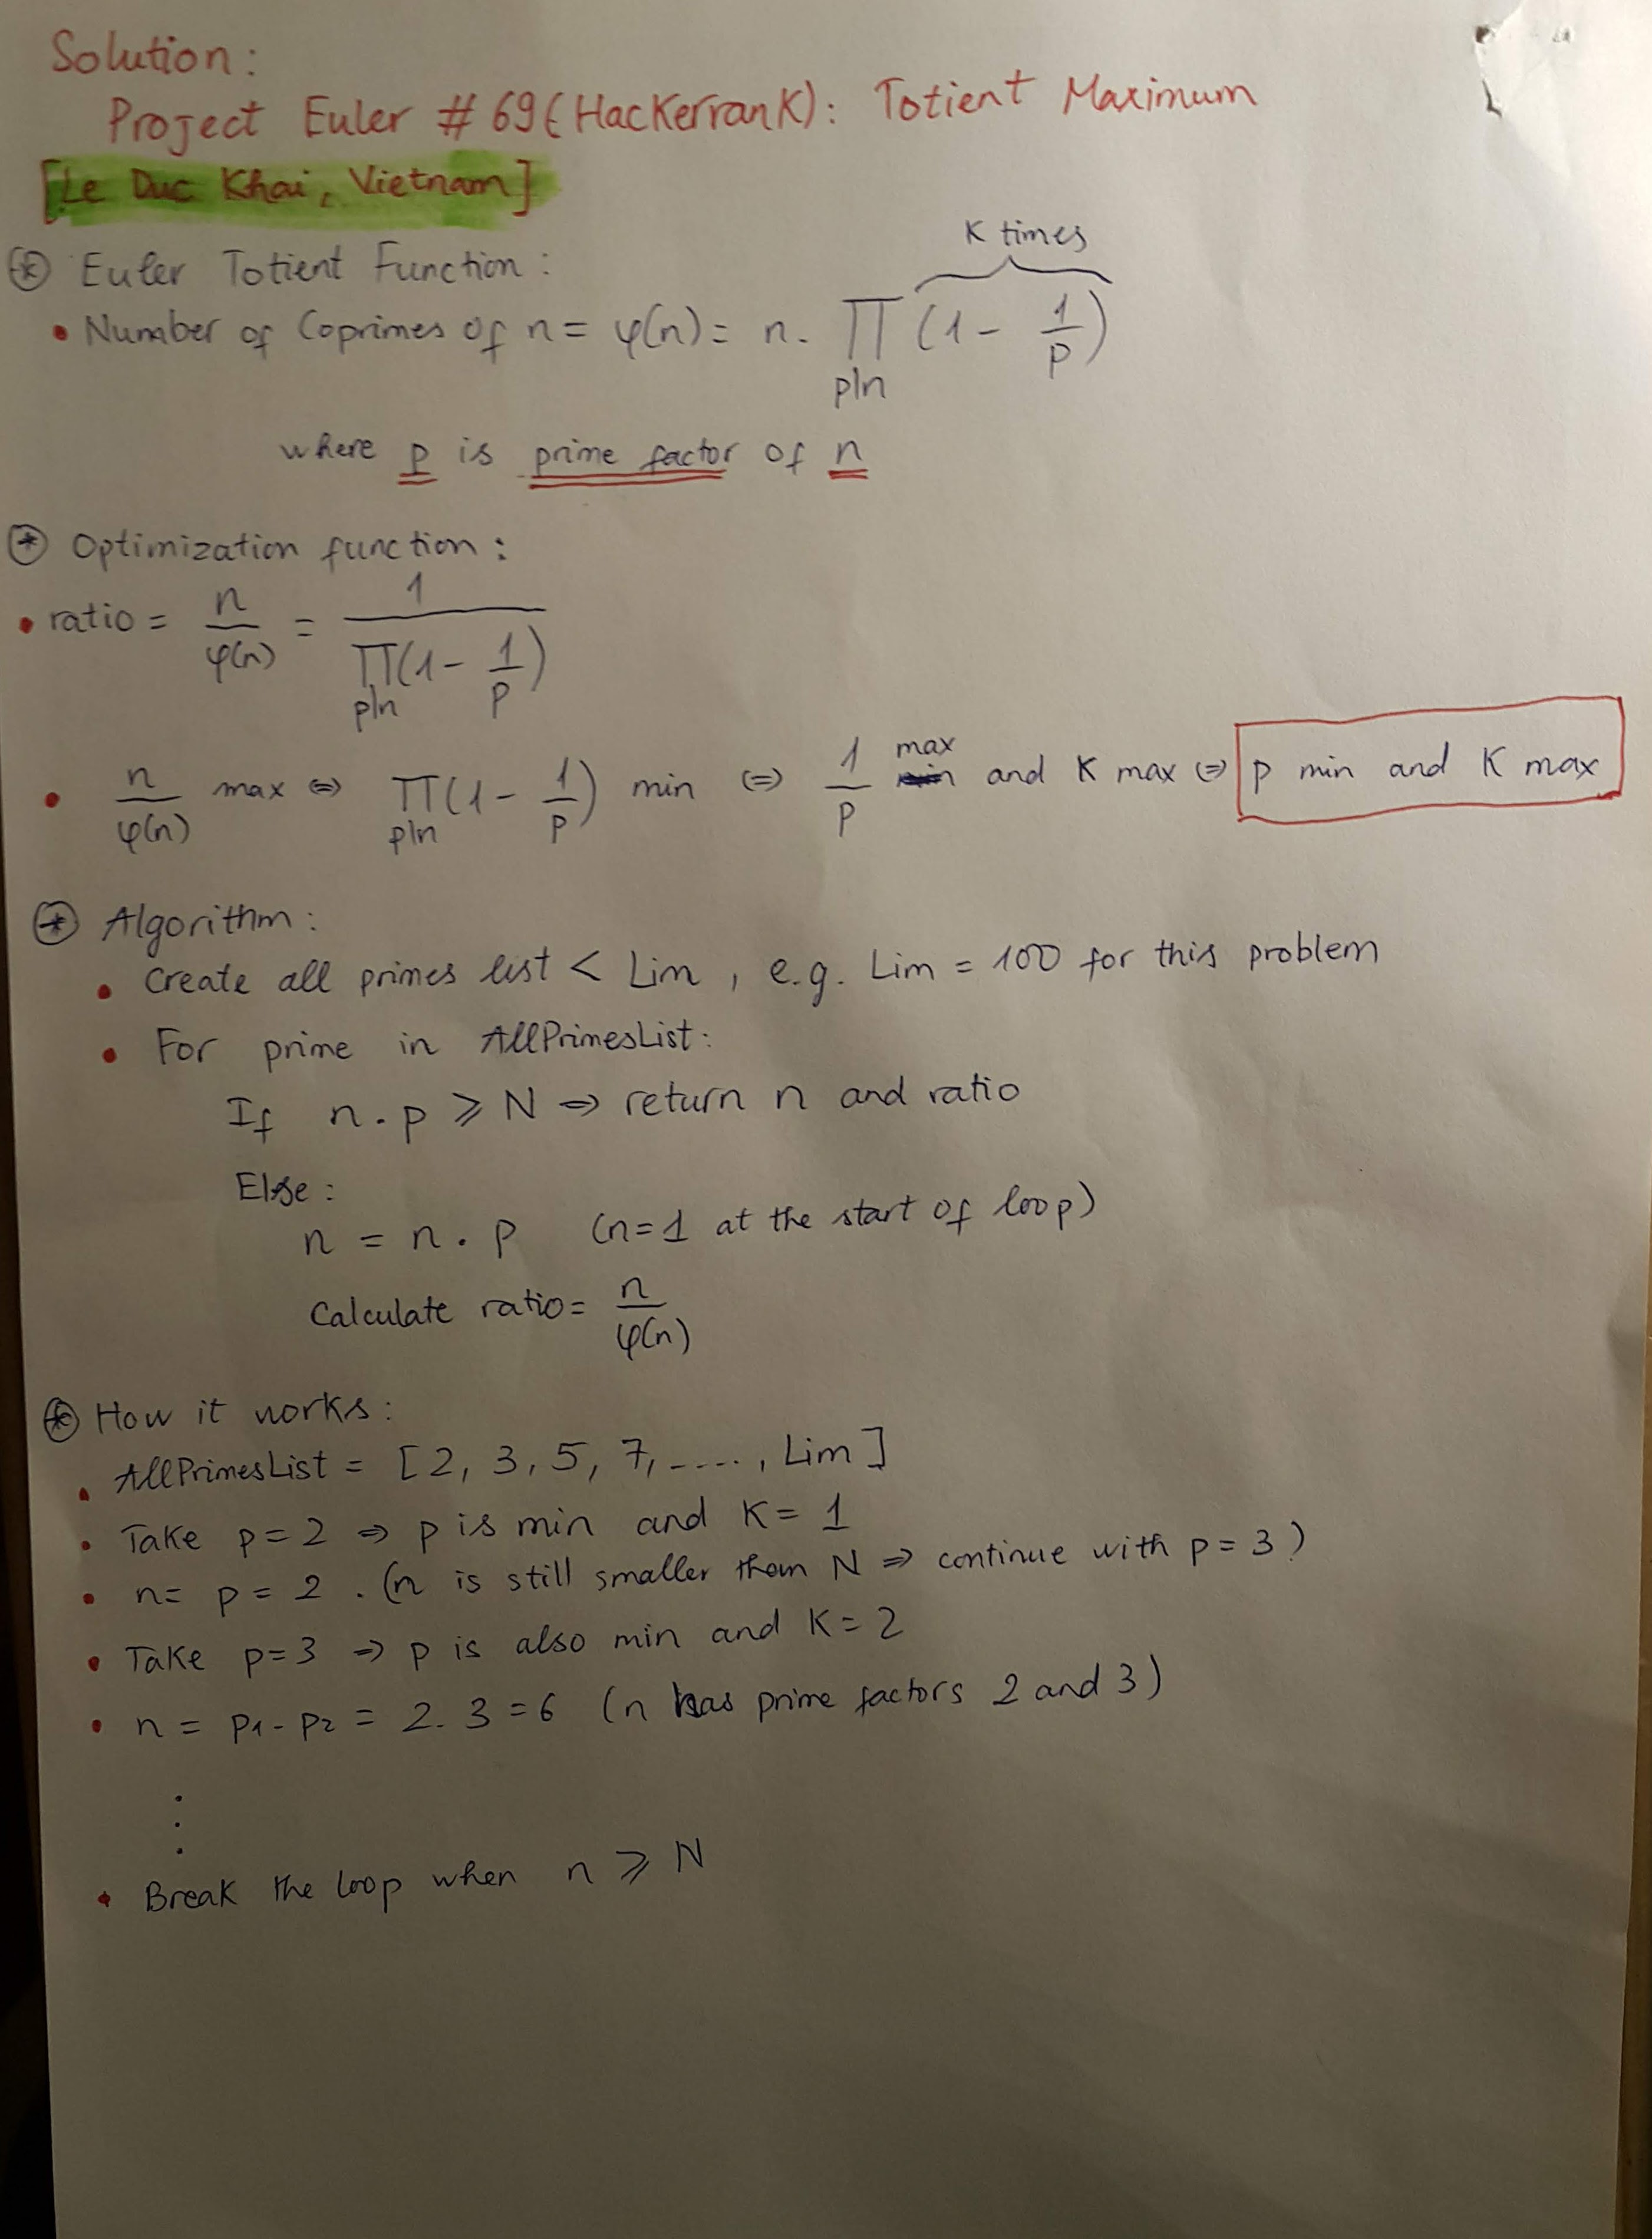 Solution:
Project Euler # 69 (HacKerranK): Totient Maximum
[Le Duc Khai, Vietnam]
⊛ Euler Totient Function:
K times
• Number of Coprimes of n = φ(n) = n. ∏ (1 - 1/p)
p|n
where p is prime factor of n
⊛ Optimization function:
• ratio = n/φ(n) = 1/∏(1 - 1/p)
p|n
• n/φ(n) max ⇔ ∏(1 - 1/p) min ⇔ 1/p max and K max ⇔ p min and K max
p|n
⊛ Algorithm:
• Create all primes list < Lim, e.g. Lim = 100 for this problem
• For prime in AllPrimesList:
If n.p ⩾ N ⇒ return n and ratio
Else:
n = n.p (n=1 at the start of loop)
Calculate ratio = n/φ(n)
⊛ How it works:
• AllPrimesList = [2, 3, 5, 7, ...., Lim]
• Take p = 2 ⇒ p is min and K = 1
• n = p = 2. (n is still smaller than N ⇒ continue with p = 3)
• Take p=3 ⇒ p is also min and K = 2
• n = p1.p2 = 2.3 = 6 (n has prime factors 2 and 3)
⋮
• Break the loop when n ⩾ N